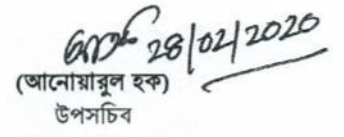 28/02/2020
(আনোয়ারুল হক)
উপসচিব